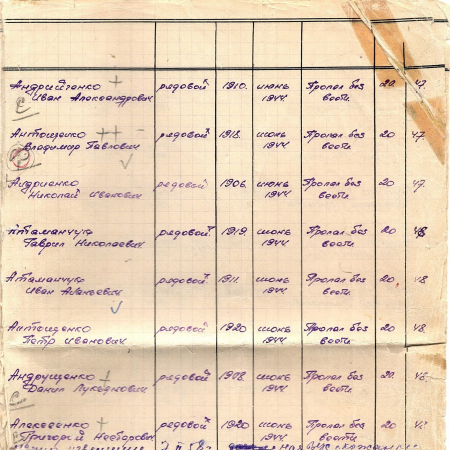 Андрийченко + рядовой 1910. июнь Пропал без 20 47.
Иван Александрович 1944 вести
Антощенко ++ – рядовой 1918. июнь Пропал без 20 47
Владимир Павлович 1944 вести
Андриенко рядовой 1906. июнь Пропал без 20 47.
Николай Иванович 1944 вести
Атаманчук рядовой 1919. июнь Пропал без 20 48
Гаврил Николаевич 1944 вести
Атаманчук рядовой 1911. июнь Пропал без 20 48
Иван Алексеевич 1944 вести
Антощенко рядовой 1920 июнь Пропал без 20 48
Петр Иванович 1944 вести
Андрущенко рядовой июнь Пропал без 20
Данил 1944 вести
Алексеенко + рядовой 1920 июнь Пропал без 20
Григорий 1944 вести